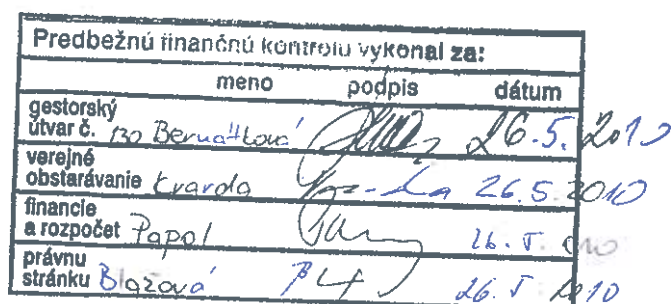 Predbežnú finančnú kontrolu vykonal za:
meno podpis dátum
gestorský
útvar č. 130 Bernátková 26.5.2010
verejné
obstarávanie Kvarda 26.5.2010
financie
a rozpočet Papol 26. V. 2010
právnu
stránku Blažová 26. V. 2010